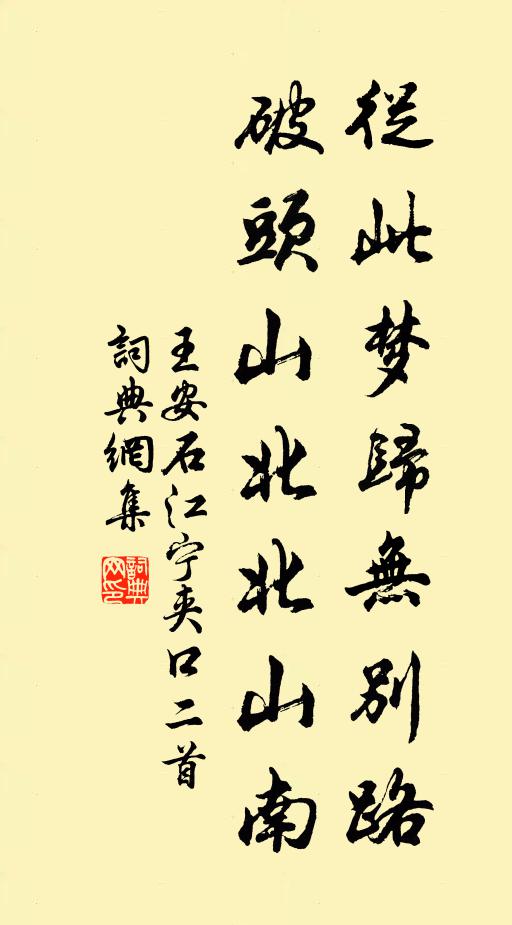 從此梦歸無別路
破頭山北北山南
王安石江宁夾口二首
詞典網集
詞典网印